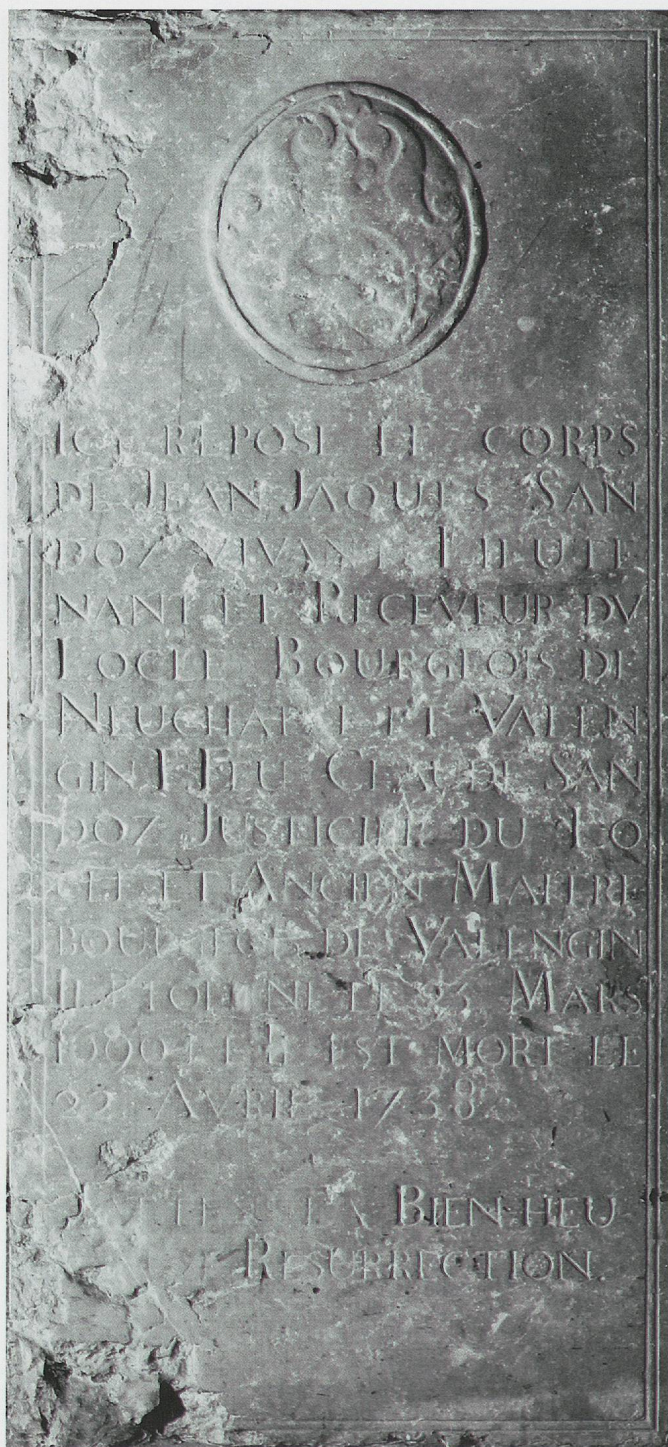 ICI REPOSE LE CORPS
DE JEAN JAQUES SAN
DOZ VIVANT LIEUTE
NANT ET RECEVEUR DV
LOCLE BOURGEOIS DE
NEUCHATEL ET VALEN
GIN FEU CLAUDE SAN
DOZ JUSTICIER DU LO
CLE ET ANCIEN MAITRE
BOURGEOIS DE VALENGIN
IL ETOIT NE LE 23 MARS
1690 ET IL EST MORT LE
22 AVRIL 1738
LA BIEN-HEU
RESURRECTION.